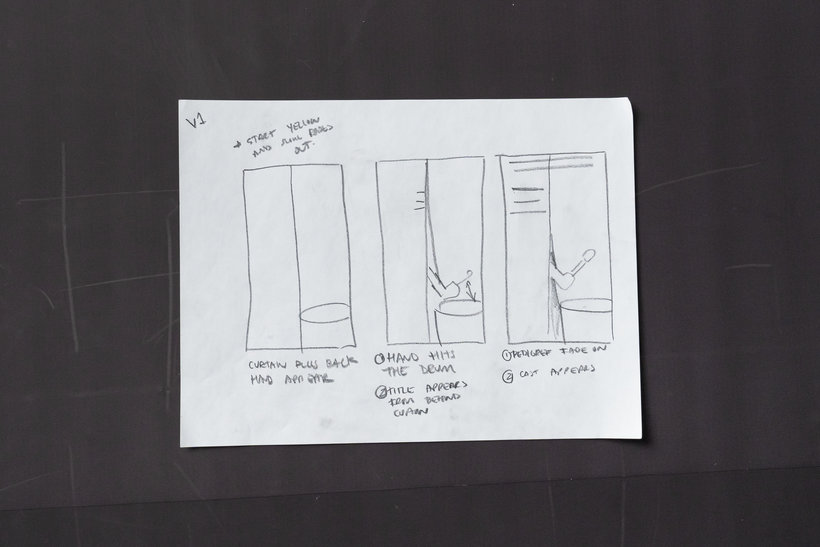 V1
→ START YELLOW
AND
OUT.
CURTAIN PULLS BACK
HAND APPEAR
① HAND HITS
THE DRUM
② TITLE APPEARS
FROM BEHIND
CURTAIN
① PEDIGREE FADE ON
② CAST APPEARS